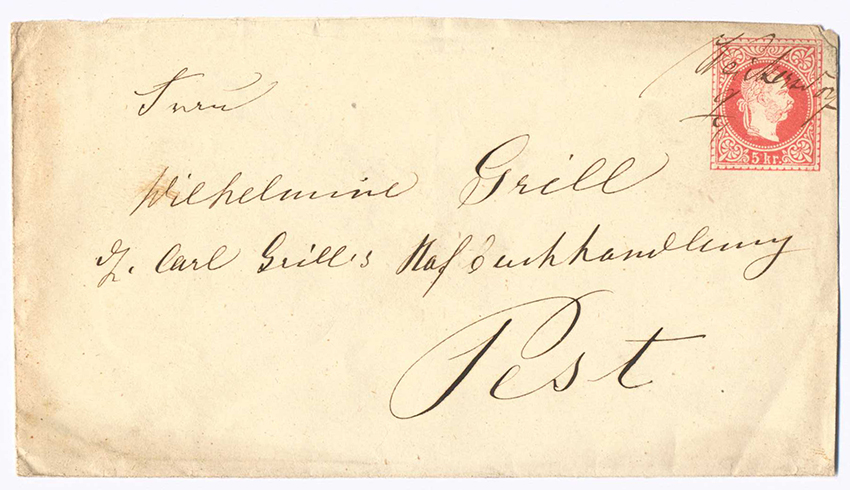 Frau
Wilhelmine Grill
Carl Grill's Hofbuchhandlung
Pest
5 kr.